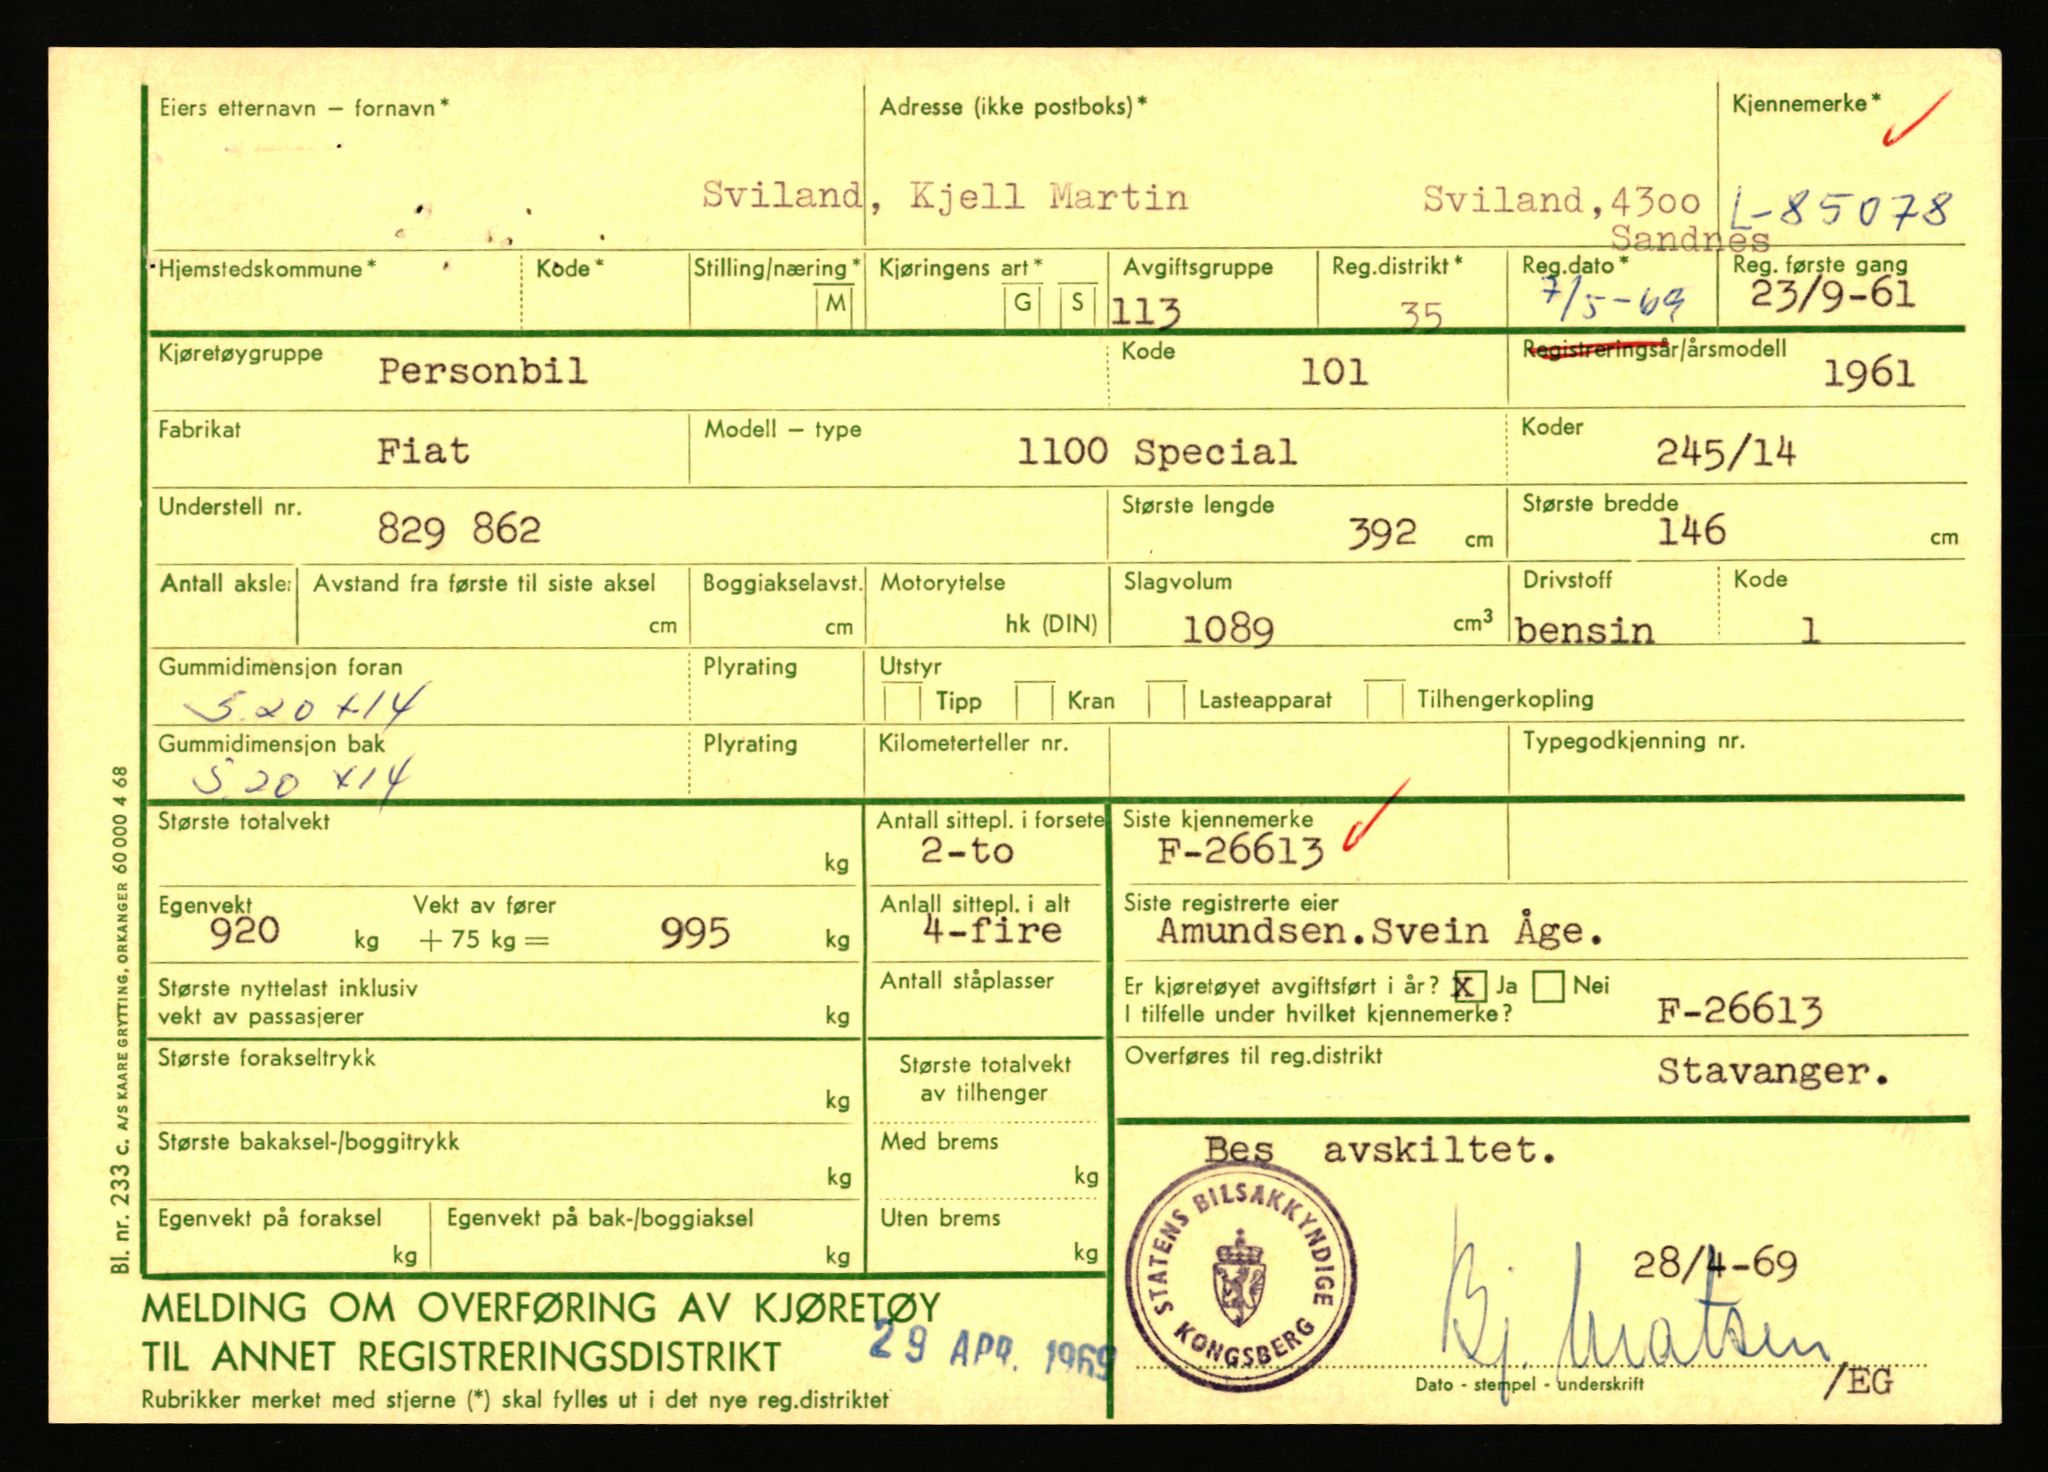 Eiers etternavn – fornavn* Adresse (ikke postboks)* Kjennemerke*
Sviland, Kjell Martin Sviland, 4300 L-85078
Sandnes
Hjemstedskommune* Kode* Stilling/næring* Kjøringens art* Avgiftsgruppe Reg.distrikt* Reg.dato* Reg. første gang
M G S 113 35 7/5-69 23/9-61
Kjøretøygruppe Kode Registreringsår/årsmodell
Personbil 101 1961
Fabrikat Modell – type Koder
Fiat 1100 Special 245/14
Understell nr. Største lengde Største bredde
829 862 392 cm 146 cm
Antall aksler Avstand fra første til siste aksel Boggiakselavst. Motorytelse Slagvolum Drivstoff Kode
cm cm hk (DIN) 1089 cm3 bensin 1
Gummidimensjon foran Plyrating Utstyr
5.20 x 14 Tipp Kran Lasteapparat Tilhengerkopling
Gummidimensjon bak Plyrating Kilometerteller nr. Typegodkjenning nr.
5.20 x 14
Største totalvekt Antall sittepl. i forsete Siste kjennemerke
kg 2-to F-26613
Egenvekt Vekt av fører Antall sittepl. i alt Siste registrerte eier
920 kg + 75 kg = 995 kg 4-fire Amundsen.Svein Åge.
Største nyttelast inklusiv Antall ståplasser Er kjøretøyet avgiftsført i år? X Ja Nei
vekt av passasjerer kg I tilfelle under hvilket kjennemerke? F-26613
Største forakseltrykk Største totalvekt Overføres til reg.distrikt
kg av tilhenger Stavanger.
Største bakaksel-/boggitrykk Med brems Bes avskiltet.
kg kg
Egenvekt på foraksel Egenvekt på bak-/boggiaksel Uten brems
kg kg kg
STATENS BILSAKKYNDIGE
KONGSBERG
28/4-69
Bj. Matsen
MELDING OM OVERFØRING AV KJØRETØY
TIL ANNET REGISTRERINGSDISTRIKT 29 APR. 1969
Dato - stempel - underskrift /EG
Rubrikker merket med stjerne (*) skal fylles ut i det nye reg.distriktet
Bl. nr. 233 c. A/S KAARE GRYTTING, ORKANGER 60 000 4 68